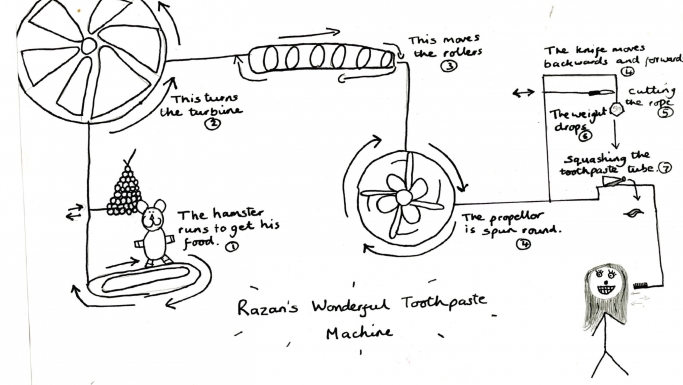 This moves
the rollers
③
The knife moves
backwards and forward
④
cutting
the rope
⑤
This turns
the turbine
②
The weight
drops.
⑥
Squashing the
toothpaste tube. ⑦
The hamster
runs to get his
food. ①
The propellor
is spun round.
④
Razan's Wonderful Toothpaste
Machine